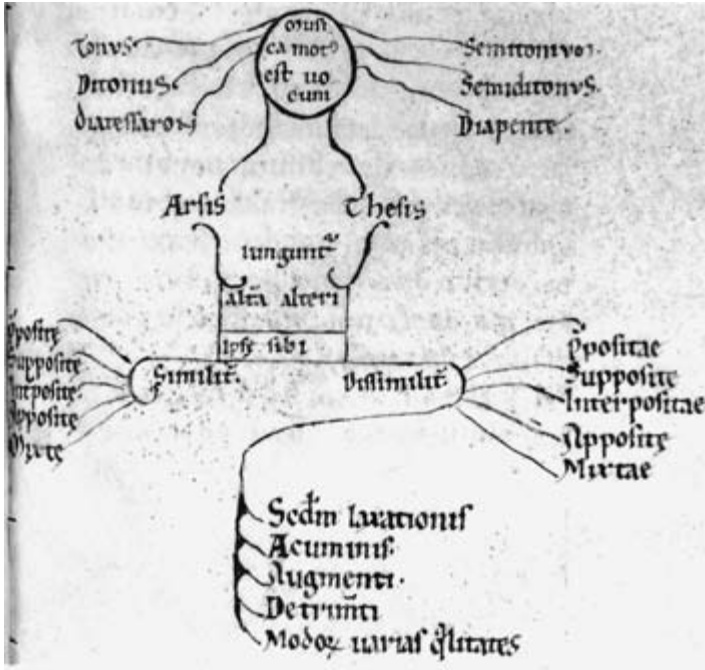 musi
ca mot⁹
est uo
cum
Tonus
Ditonus
diatessaron
Semitonium
Semiditonus
Diapente
Arsis
Thesis
iungunt᷑
alt̄a alteri
ipsę sibi
Similit̄
Dissimilit̄
ppositę
Supposite
Intposite
Appositę
Mixtę
Ppositae
Suppositę
Interpositae
Appositę
Mixtae
Scd̄m laxationis
Acuminis
Augmenti
Detrim̄ti
Modoꝝ uarias q̄litates